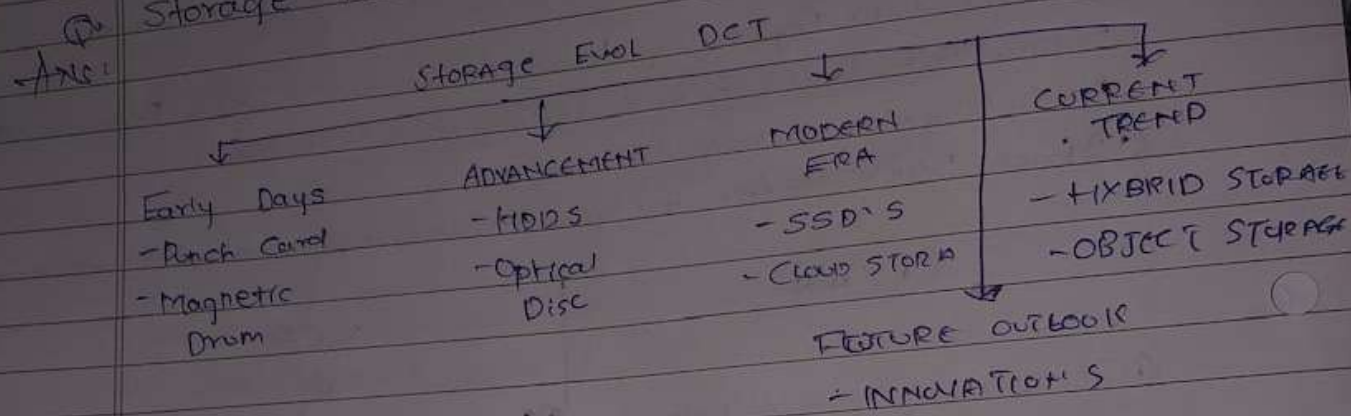 Q Storage
Ans:
Storage Evol DCT
Early Days
- Punch Card
- Magnetic
Drum
ADVANCEMENT
- HDDS
- Optical
Disc
MODERN
ERA
- SSD'S
- CLOUD STORA
CURRENT
TREND
- HYBRID STORAGE
- OBJECT STORAGE
FUTURE OUTLOOK
- INNOVATION'S